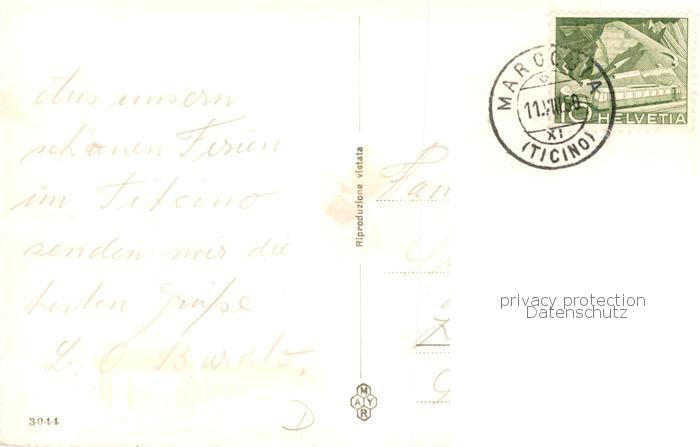 Aus unsern
schönen Ferien
im Titcino
senden wir die
besten Grüße
L. O.
3044
Riproduzione vietata
MAYR
MAROGGIA
11.VIII.50
XI
(TICINO)
10 HELVETIA
Fam
privacy protection
Datenschutz
D